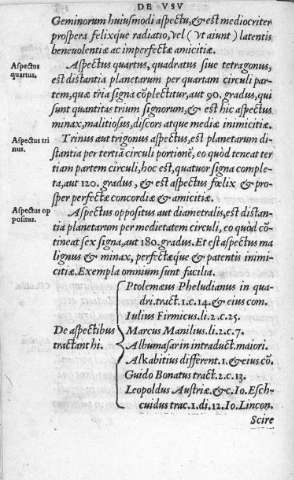 DE VSV
Geminorum huiusmodi aspectus, & est mediocriter
prospera felixque radiatio, vel (vt aiunt) latentis
beneuolentiæ ac imperfectæ amicitiæ.
Aspectus quartus.
Aspectus quartus, quadratus siue tetragonus,
est distantia planetarum per quartam circuli par-
tem, quæ tria signa cõplectitur, aut 90. gradus, qui
sunt quantitas trium signorum, & est hic aspectus
minax, malitiosus, discors atque mediæ inimicitiæ.
Aspectus tri
nus.
Trinus aut trigonus aspectus, est planetarum di-
stantia per tertiã circuli portionẽ, eo quòd teneat ter
tiam partem circuli, hoc est, quatuor signa comple-
ta, aut 120. gradus, & est aspectus fœlix & pro-
sper perfectæ concordiæ & amicitiæ.
Aspectus op
positus.
Aspectus oppositus aut diametralis, est distan-
tia planetarum per medietatem circuli, eo quòd cõ-
tineat sex signa, aut 180. gradus. Et est aspectus ma
lignus & minax, perfectæque & patentis inimi-
citiæ. Exempla omnium sunt facilia.
De aspectibus
tractant hi.
Ptolemæus Pheludianus in qua-
dri. tract. 1. c. 14. & eius com.
Iulius Firmicus. li. 2. c. 25.
Marcus Manilius. li. 2. c. 7.
Albumasar in introduct. maiori.
Alkabitius different. 1. & eius cõ.
Guido Bonatus tract. 2. c. 13.
Leopoldus Austriæ, & c. Io. Esch-
cuidus trac. 1. di. 12. Io. Lincon.
Scire